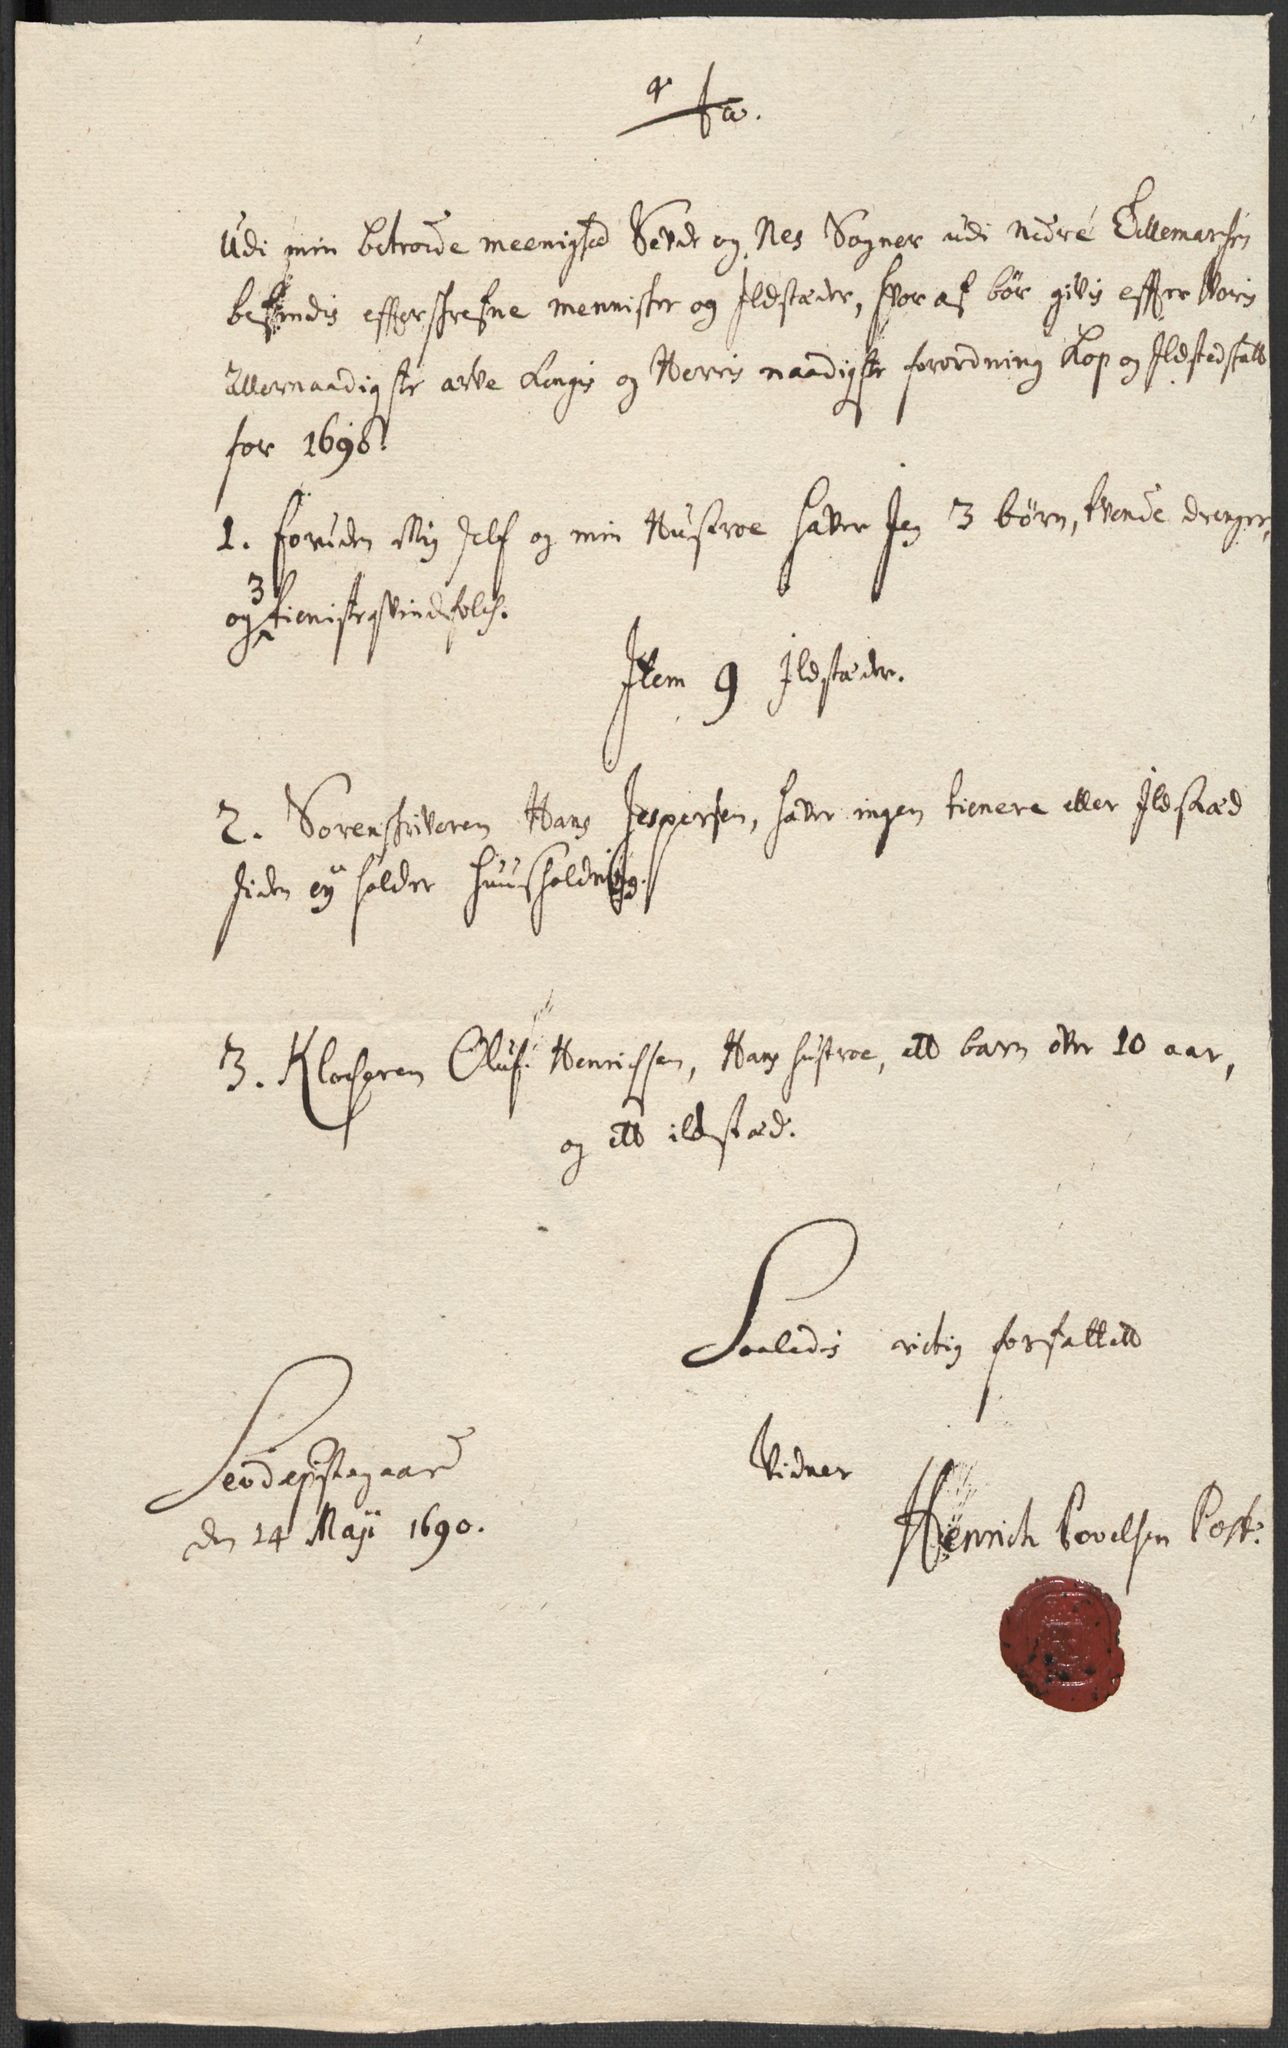 Udi min betroede meenighed Sevde og Nes Sogner udi nedre Tellemarchen
befindis effterschrefne mennister og Ildstæder, hvor af bör givis effter Voris
Allernaadigste arve Kongis og Herris naadigste forordning Kop og Ildstedskatt
for 1690.
1. foruden Mig self og min Hustroe haver Jeg 3 börn, tvende drenger,
og 3 tieniste qvindfolch.
Item 9 Ildstæder.
2. Sorenskriveren Hans Jespersen, haver ingen tienere eller Ildstæd
siden ey holder huusholdning.
3. Klocheren Oluf Henrichsen, Hans hustroe, ett barn over 10 aar,
og ett ildstæd.
Saaledis rictig forfattett
Vidner
Sevde prestegaard
den 24 Maji 1690.
Henrich Povelsen Post: